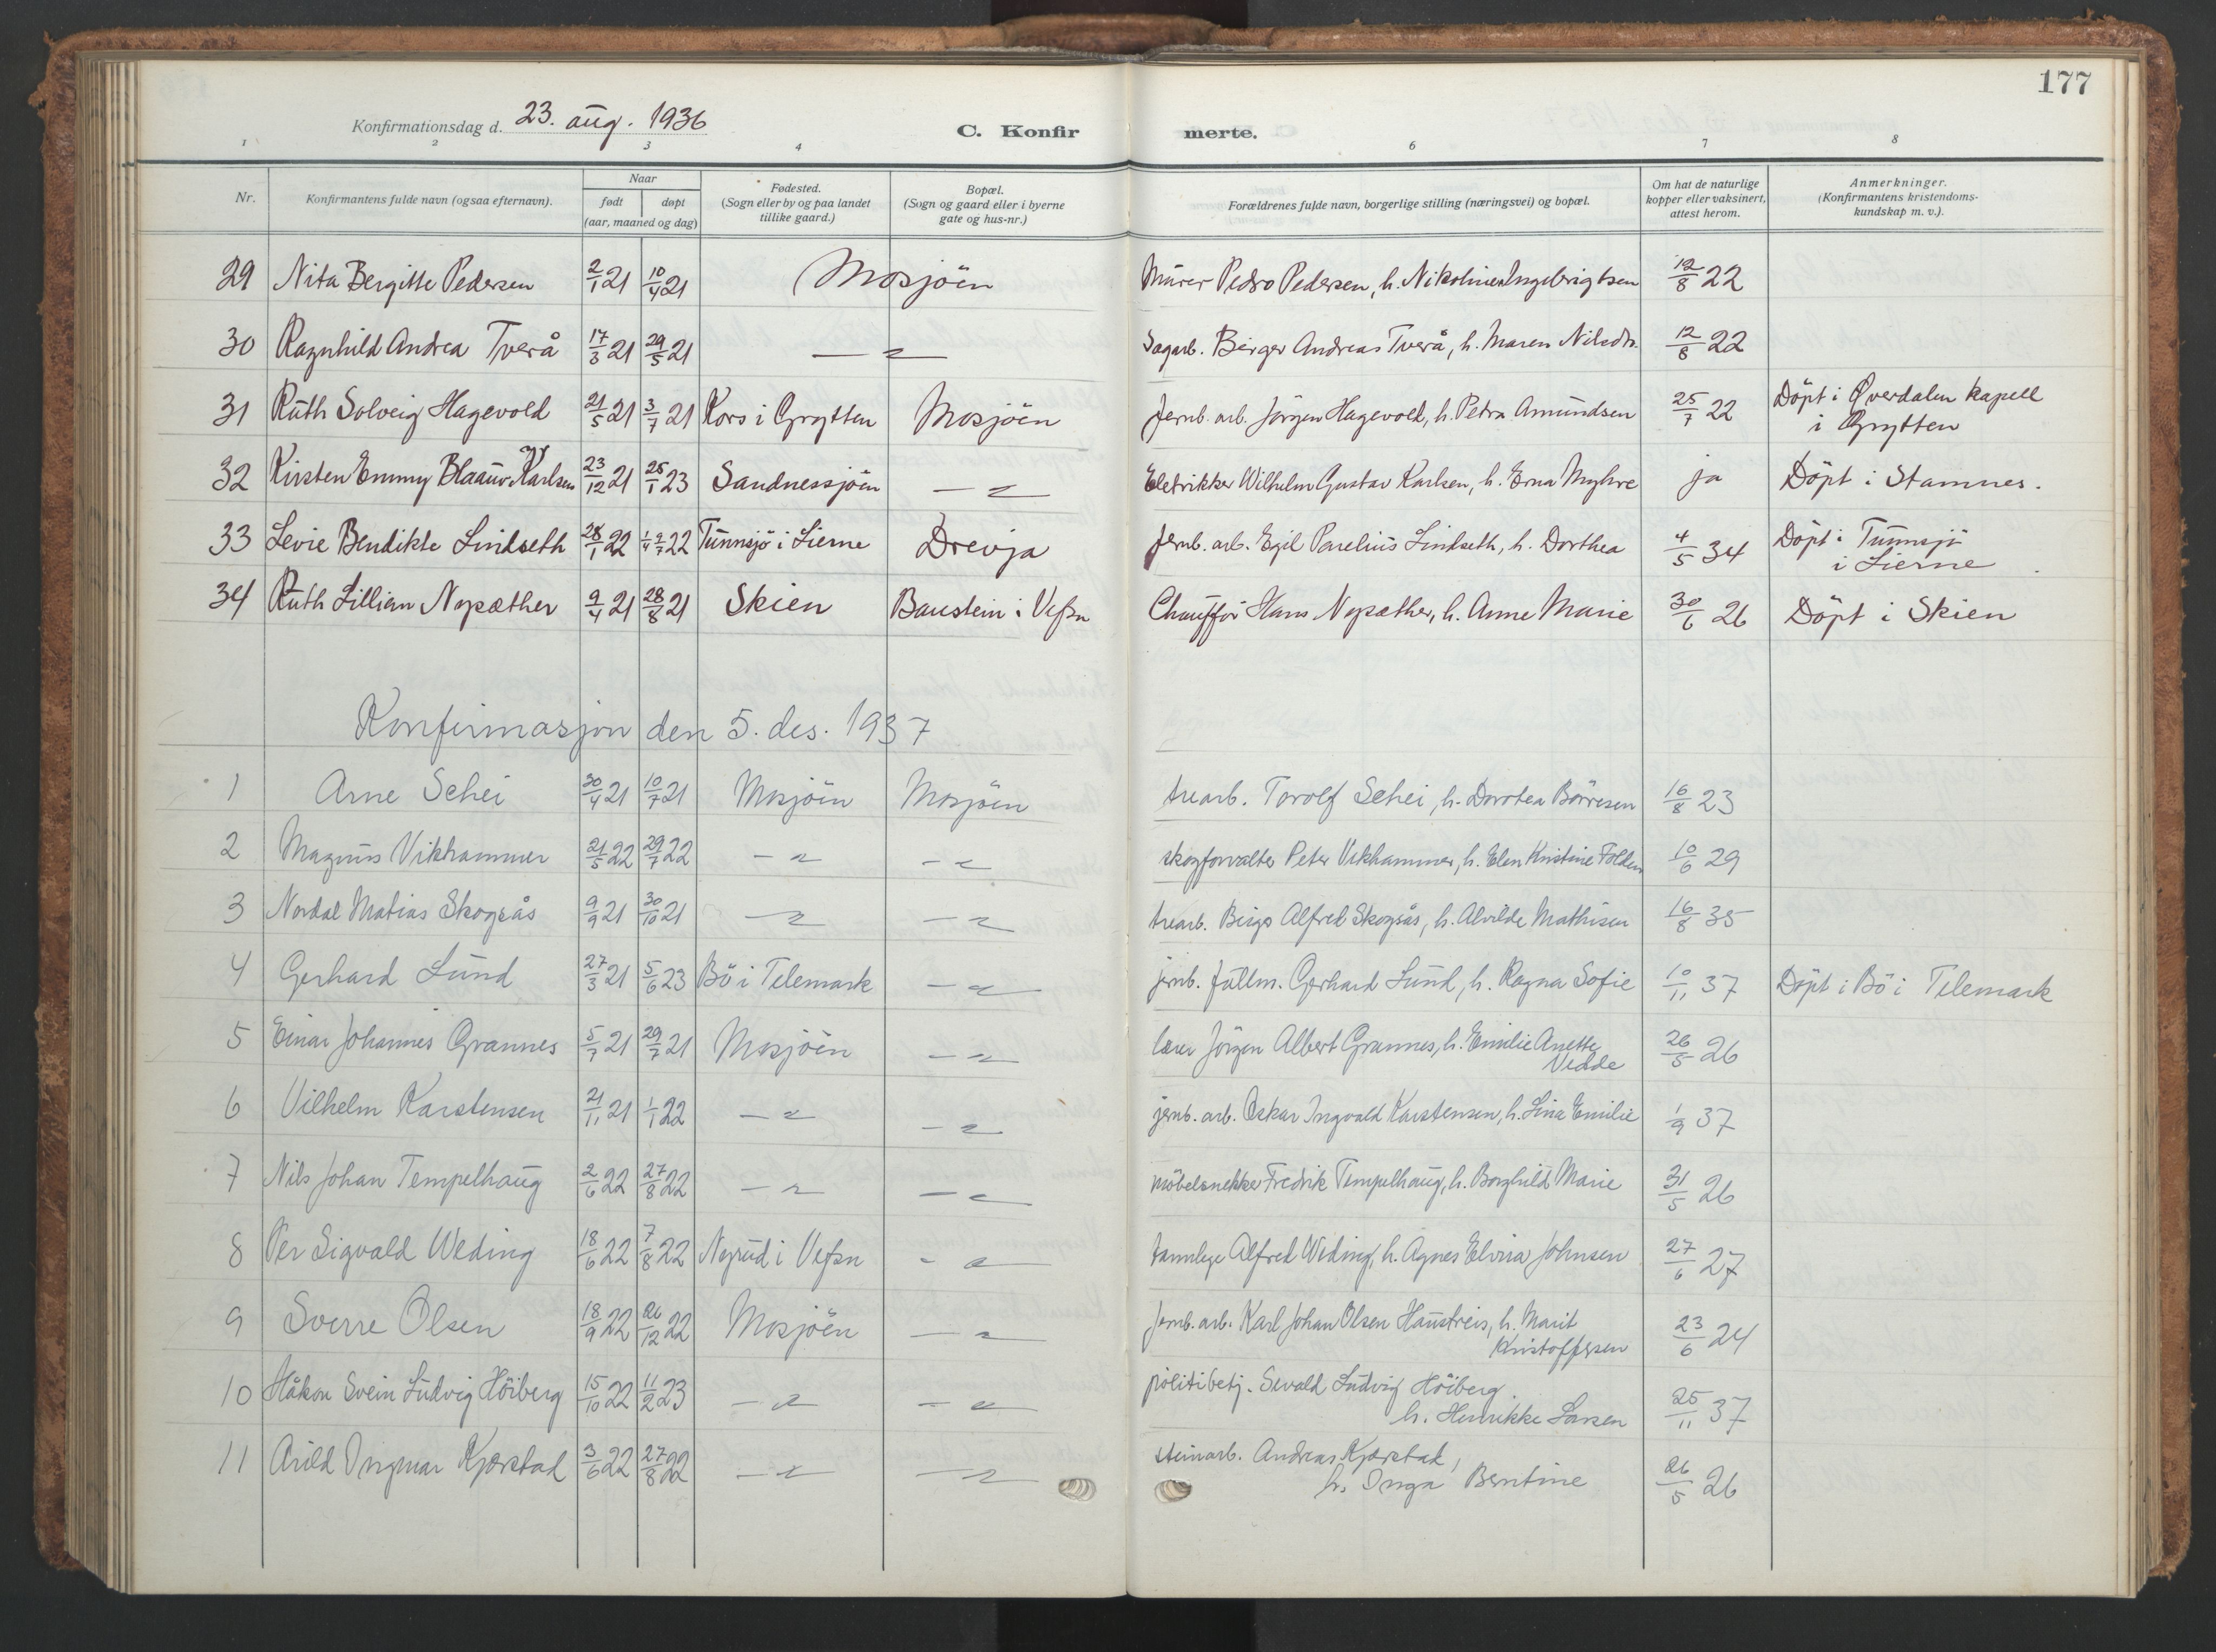 177
Konfirmationsdag d. 23. aug. 1936
C. Konfir
merte.
1 2 3 4 6 7 8
Nr.
Konfirmantens fulde navn (ogsaa efternavn).
Naar
født døpt
(aar, maaned og dag)
Fødested.
(Sogn eller by og paa landet
tillike gaard.)
Bopæl.
(Sogn og gaard eller i byerne
gate og hus-nr.)
Forældrenes fulde navn, borgerlige stilling (næringsvei) og bopæl.
Om hat de naturlige
kopper eller vaksinert,
attest herom.
Anmerkninger.
(Konfirmantens kristendoms-
kundskap m. v.).
29 Nita Bergitte Pedersen 2/1 21 10/4 21 Mosjöen Murer Pedro Pedersen, h. Nikoline Ingebrigtsen 12/8 22
30 Ragnhild Andrea Tverå 17/3 21 29/5 21 —〃— Sagarb. Birger Andreas Tverå, h. Maren Nilsdtr. 12/8 22
31 Ruth Solveig Hagevold 21/5 21 3/7 21 Kors i Grytten Mosjöen Jernb. arb. Jörgen Hagevold, h. Petra Amundsen 25/7 22 Döpt i Øverdalen kapell
i Grytten
32 Kirsten Emmy Blaauw Karlsen 23/12 21 25/1 23 Sandnessjöen —〃— Eletrikker Wilhelm Gustav Karlsen, h. Erna Myhre ja Döpt i Stamnes.
33 Levie Bendikte Lindseth 28/1 22 22 Tunnsjö i Lierne Drevja Jernb. arb. Egil Parelius Lindseth, h. Dorthea 4/5 34 Döpt i Tunnsjö
i Lierne
34 Ruth Lillian Nopæther 9/4 21 28/8 21 Skien Baustein i Vefsn Chauffør Hans Nopæther, h. Anne Marie 30/6 26 Döpt i Skien
Konfirmasjon den 5. des. 1937
1 Arne Schei 30/4 21 10/7 21 Mosjöen Mosjöen trearb. Torolf Schei, h. Dorotea Börresen 16/8 23
2 Magnus Vikhammer 21/5 22 29/7 22 —〃— —〃— skogforvalter Peter Vikhammer, h. Elen Kristine Folden 10/6 29
3 Nordal Matias Skogsås 9/9 21 30/10 21 —〃— —〃— trearb. Birger Alfred Skogsås, h. Alvilde Mathisen 16/8 35
4 Gerhard Lund 27/3 21 5/6 23 Bö i Telemark —〃— jernb. fullm. Gerhard Lund, h. Ragna Sofie 10/11 37 Döpt i Bö i Telemark
5 Einar Johannes Grannes 5/7 21 29/7 21 Mosjöen —〃— lærer Jörgen Albert Grannes, h. Emilie Anette
Vedde 26/5 26
6 Vilhelm Karstensen 21/11 21 1/1 22 —〃— —〃— jernb. arb. Oskar Ingvald Karstensen, h. Lina Emilie 1/9 37
7 Nils Johan Tempelhaug 2/6 22 27/8 22 —〃— —〃— möbelsnekker Fredrik Tempelhaug, h. Borghild Marie 31/5 26
8 Per Sigvald Weding 18/6 22 7/8 22 Nyrud i Vefsn —〃— tannlege Alfred Weding, h. Agnes Elvira Johnsen 27/6 27
9 Sverre Olsen 18/9 22 26/12 22 Mosjöen —〃— Jernb. arb. Karl Johan Olsen Haustreis, h. Marit
Kristoffersen 23/6 24
10 Håkon Svein Ludvig Höiberg 15/10 22 11/2 23 —〃— —〃— politibetj. Sevald Ludvig Höiberg
h. Henrikke Larsen 25/11 37
11 Arild Ingmar Kjærstad 3/6 22 27/8 22 —〃— —〃— steinarb. Andreas Kjærstad,
h. Inga Bentine 26/5 26